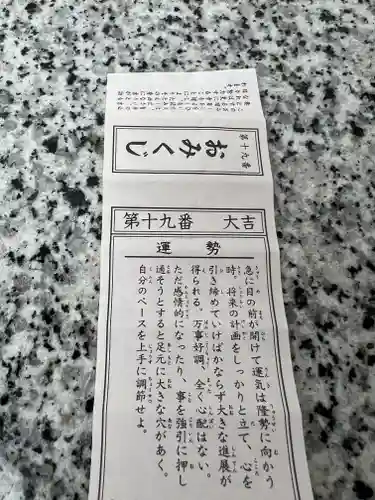 第十九番
おみくじ
第十九番 大吉
運勢
急に目の前が開けて運気は隆勢に向かう
時。将来の計画をしっかりと立て、心を
引き締めていけばかならず大きな進展が
得られる。万事好調、全く心配はない。
ただ感情的になったり、事を強引に押し
通そうとすると足元に大きな穴があく。
自分のペースを上手に調節せよ。